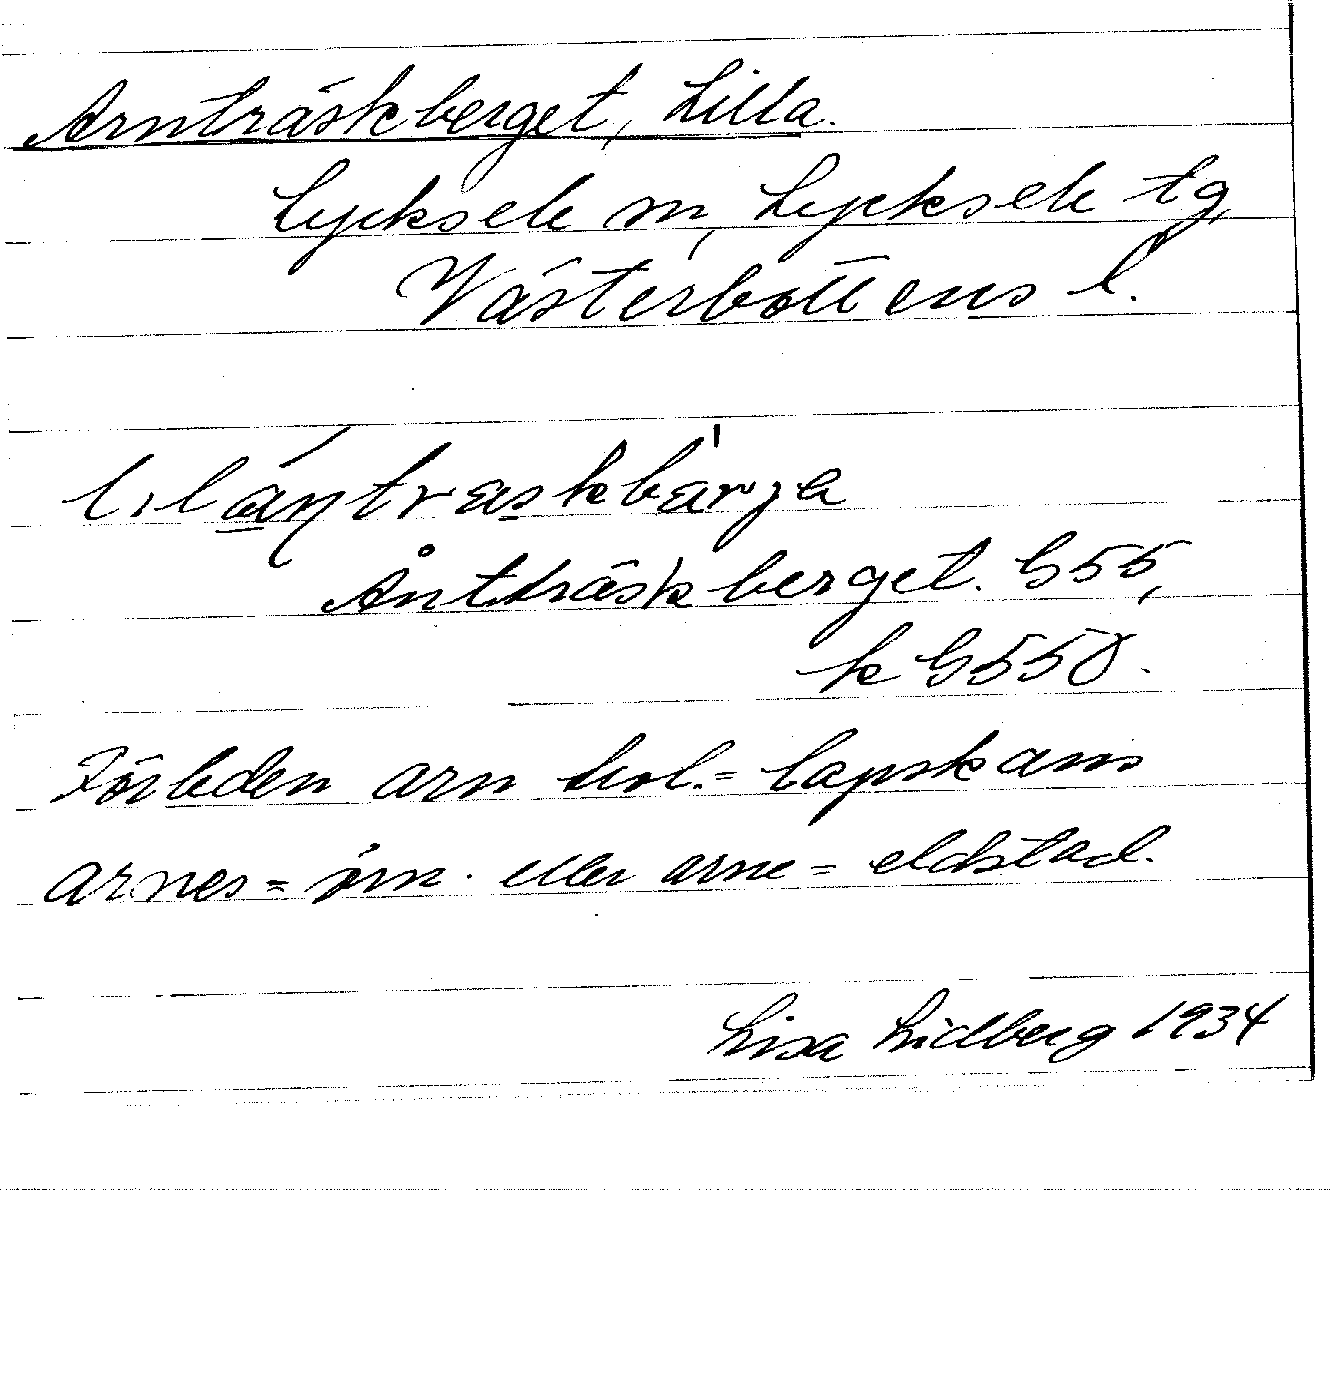 Arnträskberget, Lilla.
Lycksele sn, Lycksele tg,
Västerbottens l.
Ånträskberget. G55,
k G550.
Förleden arn trol. = lapskans
arnes = örn. eller arne = eldstad.
Lisa Lidberg 1934